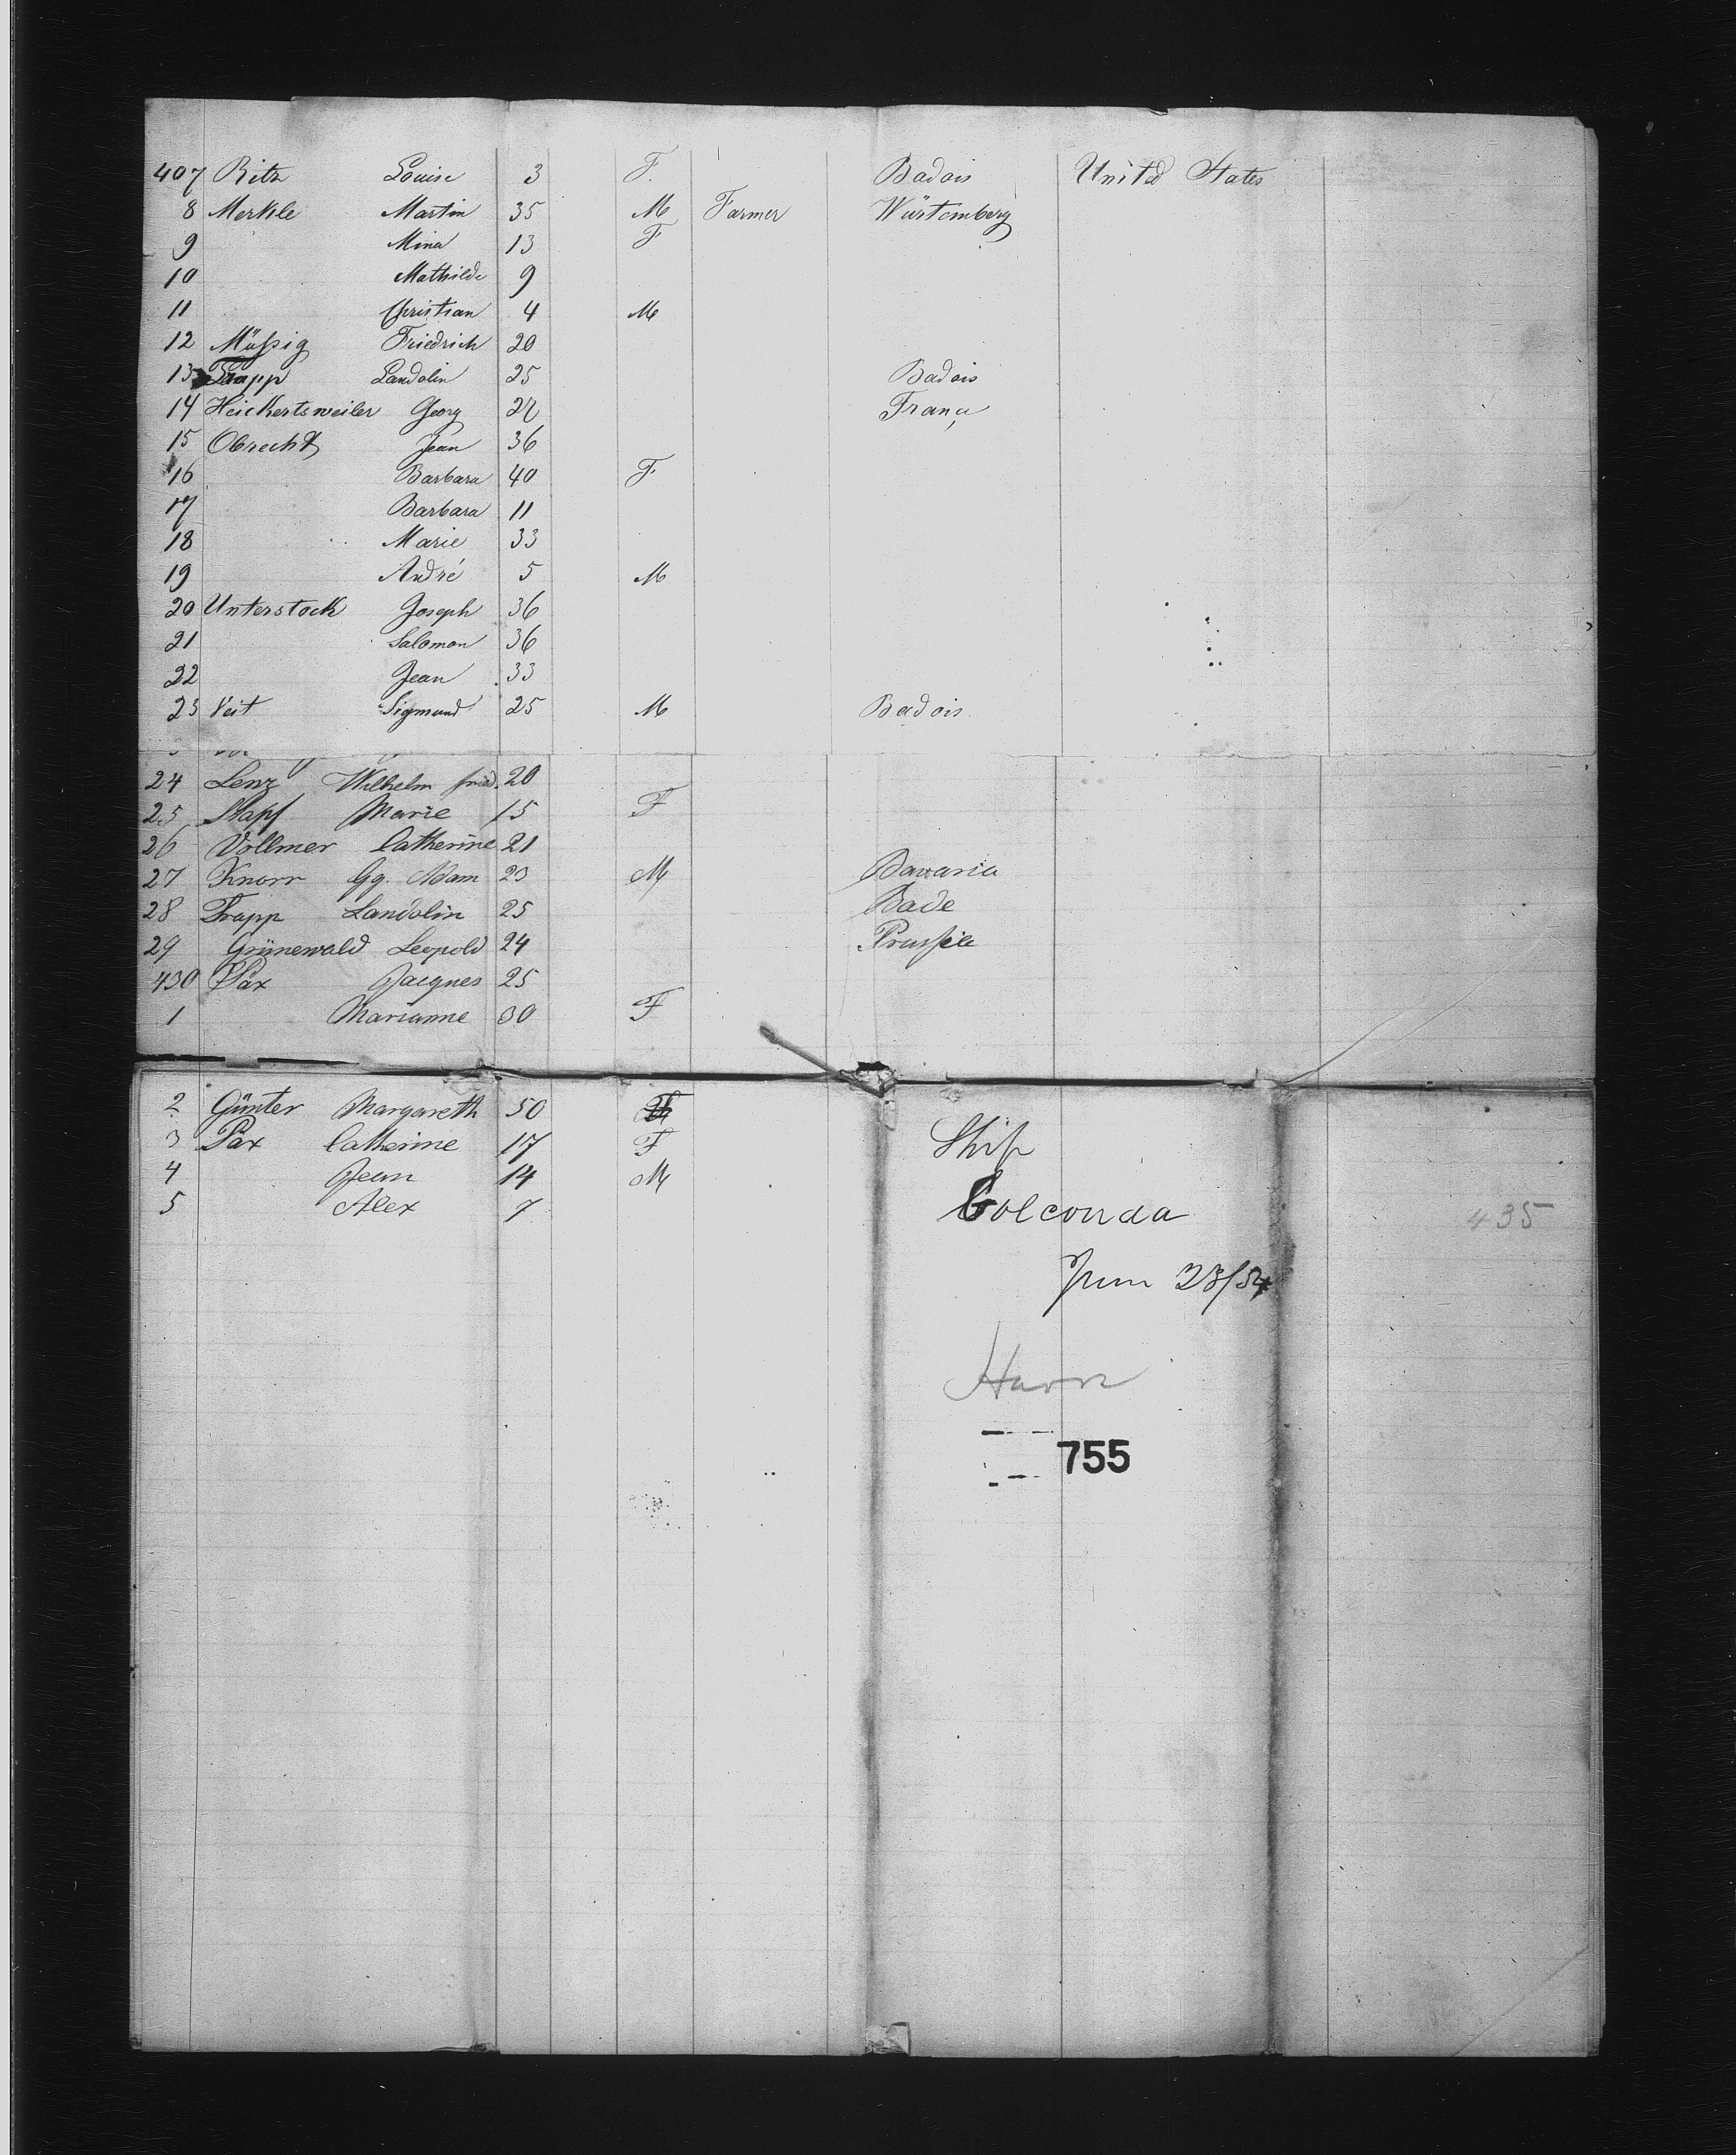 407 Ritz Louise 3 F. Badois United States
8 Merkle Martin 35 M Farmer Würtemberg
9 Mina 13 F
10 Mathilde 9
11 Christian 4 M
12 Mäßig Friedrich 20
13 Trapp Landolin 25 Badois
14 Heickertsweiler Georg 27 France
15 Obrecht Jean 36
16 Barbara 40 F
17 Barbara 11
18 Marie 33
19 André 5 M
20 Unterstock Joseph 36
21 Salomon 36
22 Jean 33
23 Veit Sigmund 25 M Badois
24 Lenz Wilhelm fried. 20
25 Stapf Marie 15 F
26 Vollmer Catherine 21
27 Knorr Gg. Adam 23 M Bavaria
28 Trapp Landolin 25 Bade
29 Grünewald Leopold 24 Prussia
430 Pax Jacques 25
1 Marianne 30 F
2 Günter Margareth 50
3 Pax Catherine 17 F
4 Jean 14 M
5 Alex 7
Ship
Golconda
June 23/54
Havre
755
435